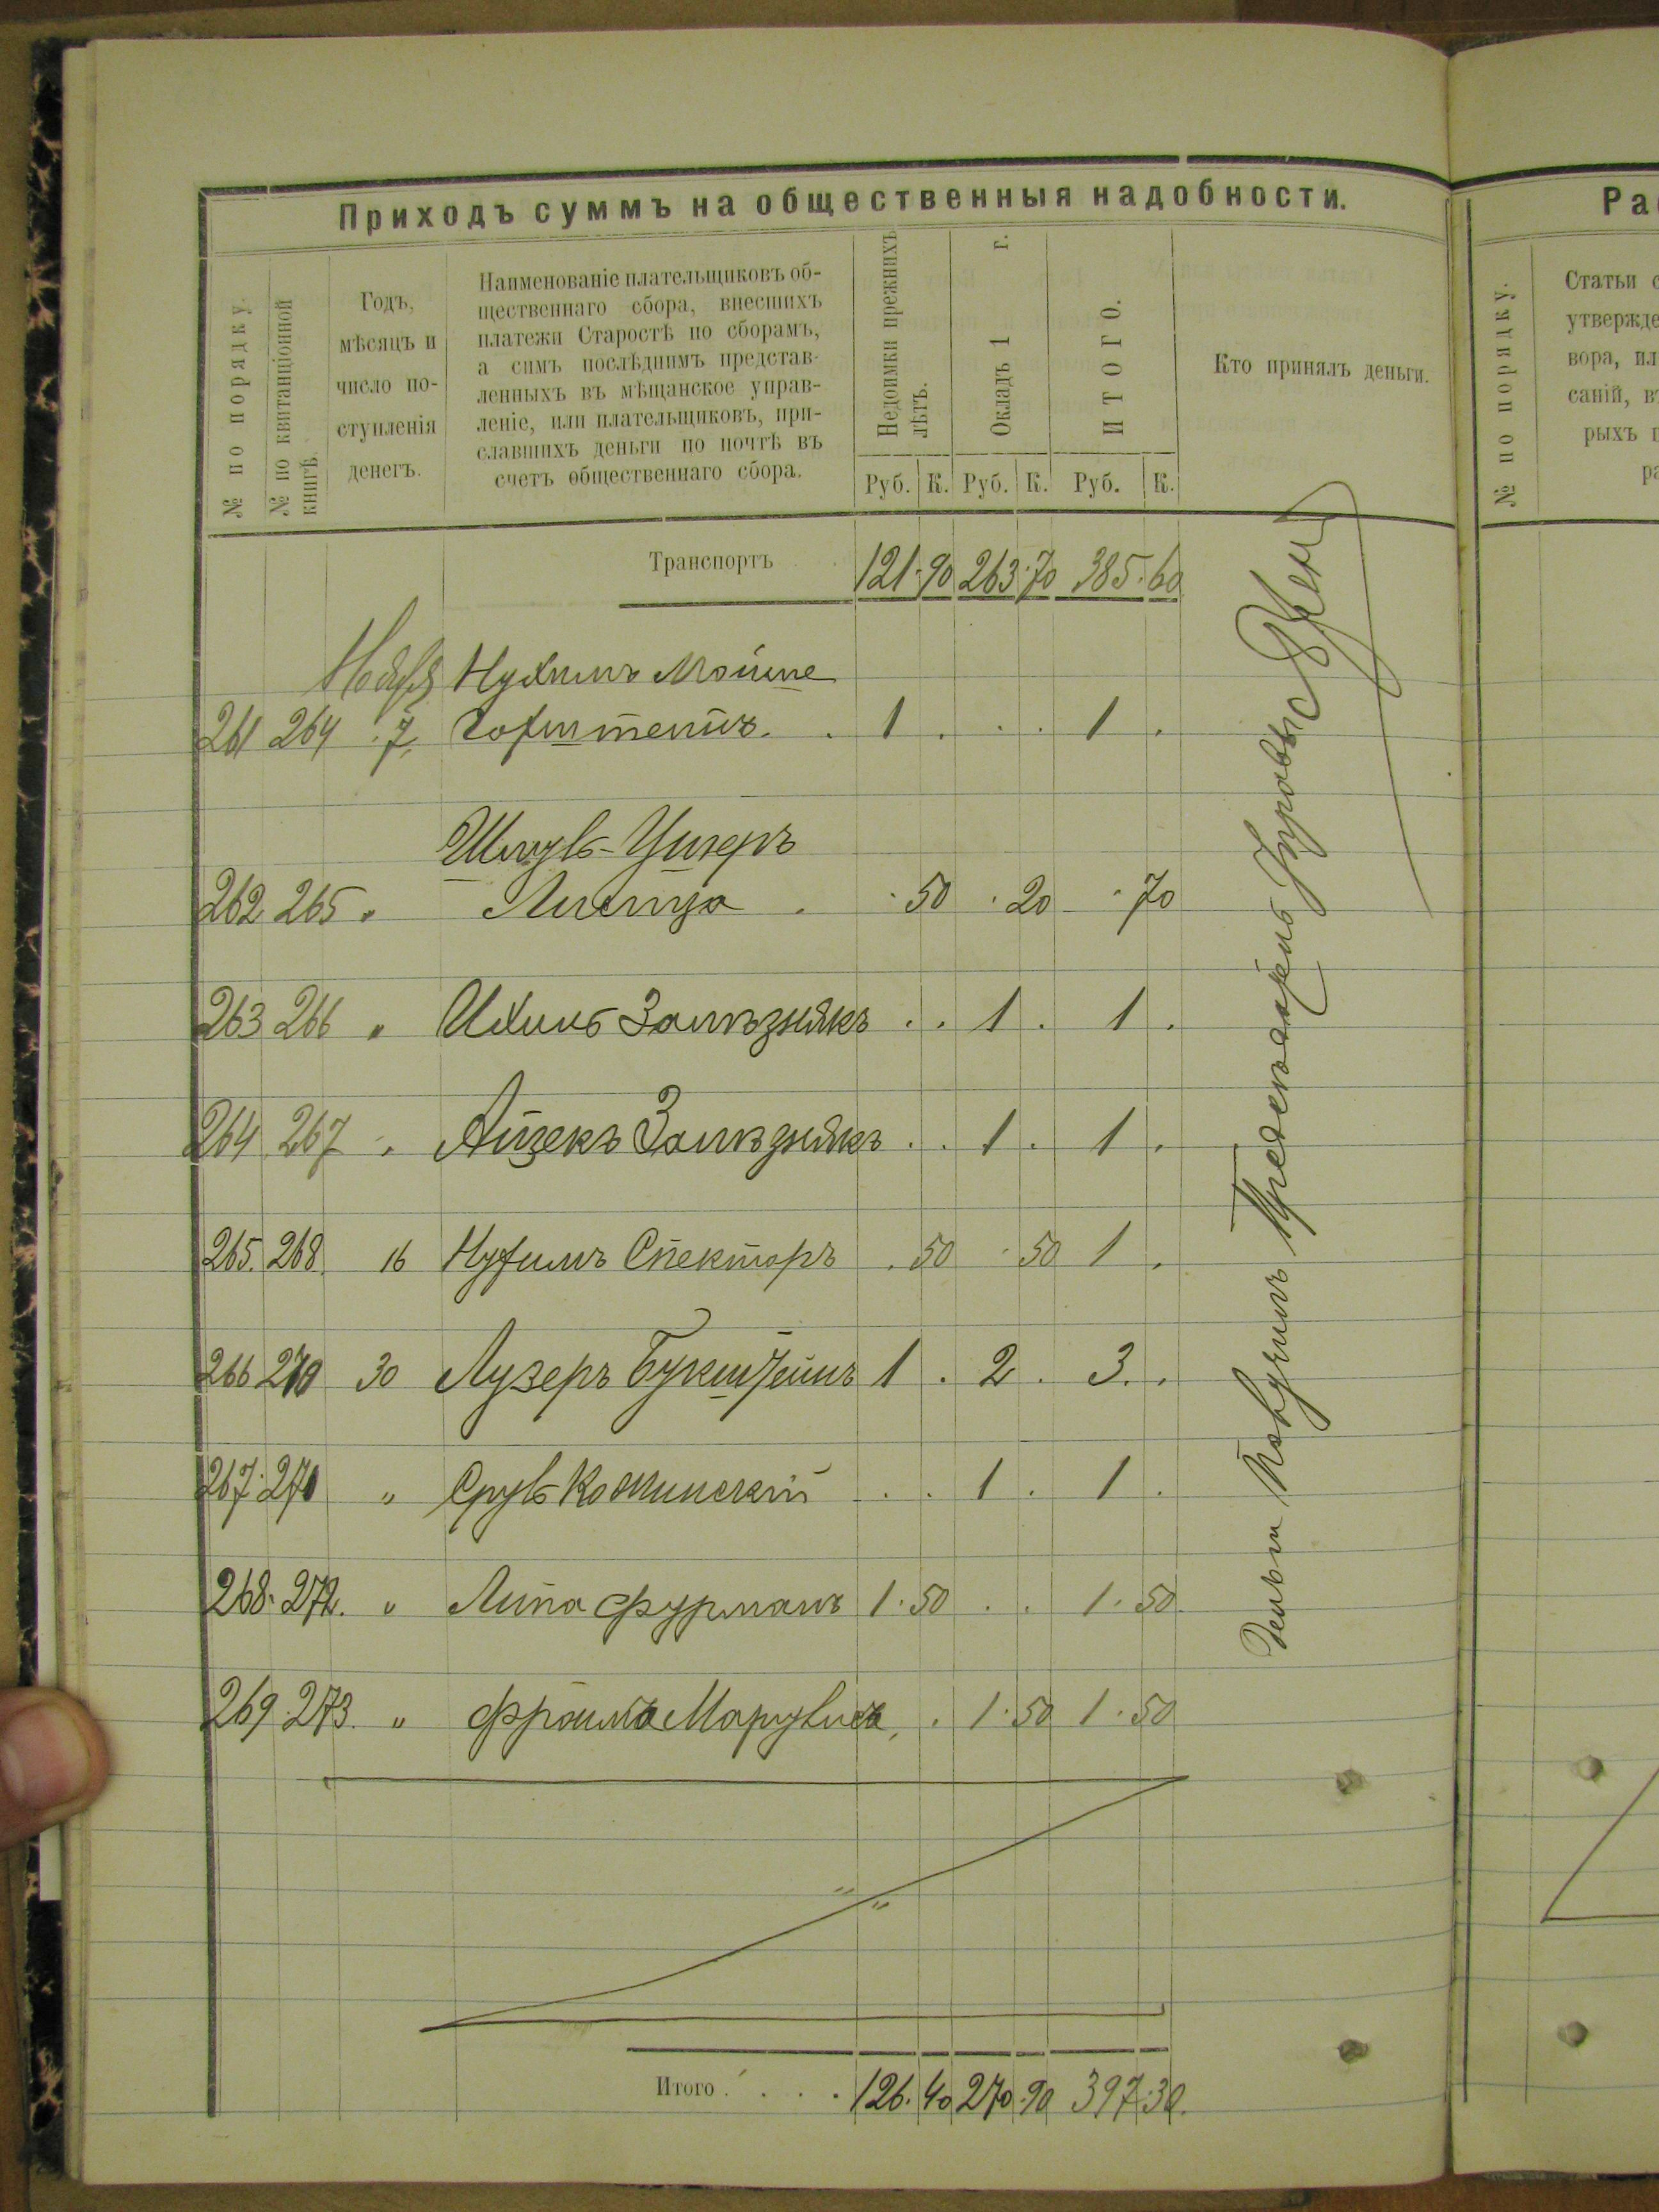 Приходъ суммъ на общественныя надобности.
№ по порядку.
№ по квитанціонной книгѣ.
Годъ,
мѣсяцъ и
число по-
ступленія
денегъ.
Наименованіе плательщиковъ об-
щественнаго сбора, внесшихъ
платежи Старостѣ по сборамъ,
а симъ послѣднимъ представ-
ленныхъ въ мѣщанское управ-
леніе, или плательщиковъ, при-
славшихъ деньги по почтѣ въ
счетъ общественнаго сбора.
Недоимки прежнихъ
лѣтъ.
Окладъ 1 г.
ИТОГО.
Кто принялъ деньги.
Руб. К. Руб. К. Руб. К.
Транспортъ 121.90 263.70 385.60
Ноября Нухимъ Мойше
261 264 7. . 1 . . . 1 .
Шмуль-Ушеръ
262 265 " . .50 .20 .70
263 266 " . . 1 . 1 .
264 267 " Айзекъ . . 1 . 1 .
265. 268. 16 Нухимъ Спекторъ . 50 . 50 1 .
266 270 30 Лузеръ Букштейнъ 1 . 2 . 3 . .
267. 271 " Сруль . . 1 . 1 .
268. 272. " Липа Фурманъ 1.50 . . 1.50
269. 273. " Фроимъ . 1.50 1.50
Итого . . . . 126.40 270.90 397.30.
Деньги получилъ
Ра
№ по порядку.
Статьи с
утвержде
вора, ил
саній, въ
рыхъ п
ра